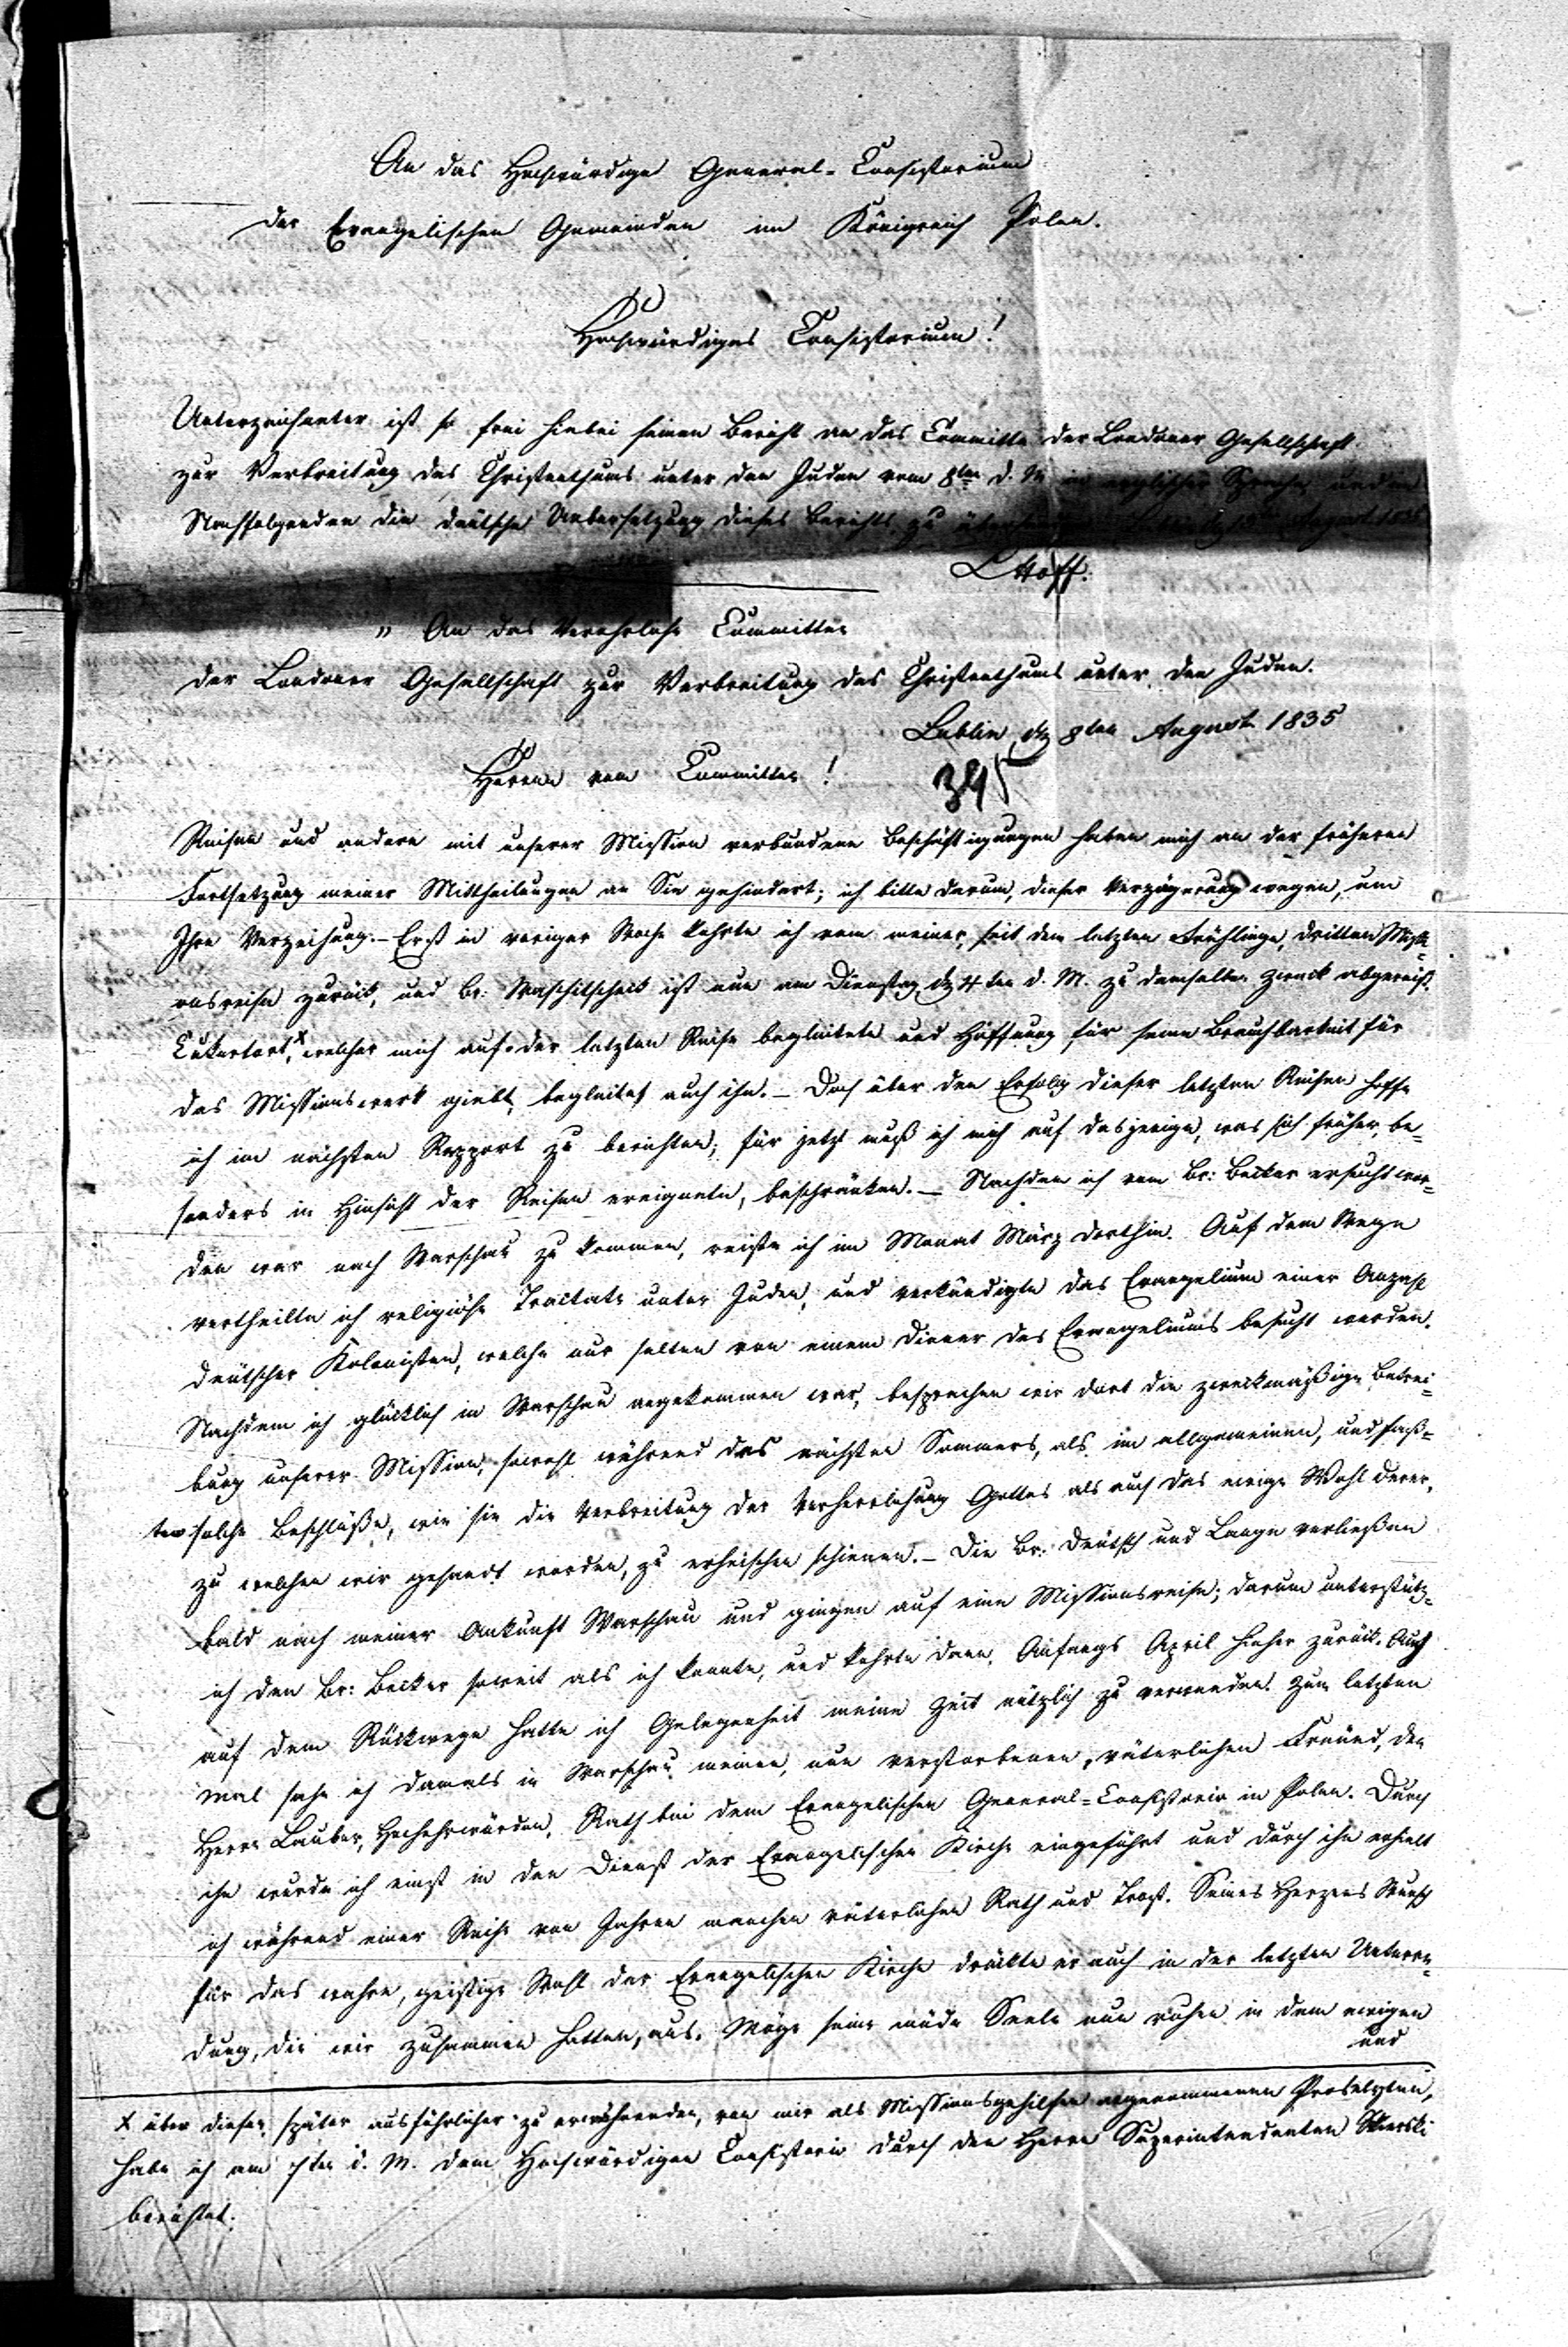 An das Hochwürdige General-Consistorium
der Evangelischen Gemeinden im Königreich Polen.
Hochwürdiges Consistorium!
Unterzeichneter ist so frei hiebei seinen Bericht an das Committe der Londoner Gesellschaft
zur Verbreitung des Christenthums unter den Juden vom 8ten d. M. in englischer Sprache und im
Nachfolgenden die deütsche Uebersetzung dieses Berichts zu August 1835
L Hoff.
" An das Verehrliche Committee
der Londoner Gesellschaft zur Verbreitung des Christenthums unter den Juden.
Lublin, d 8ten August 1835
Herren vom Committee!
345
Reisen und andere mit unserer Mission verbundene Beschäftigungen haben mich an der früheren
Fortsetzung meiner Mittheilungen an Sie gehindert; ich bitte darum, dieser Verzögerung wegen, um
Ihre Verzeihung. – Erst in voriger Woche kehrte ich von meiner, seit dem letzten Frühlinge, dritten
reise zurück, und Br: Waschitscheck ist nun am Dienstag d 4ten d. M. zu demselben Zweck abgereist.
x welcher mich auf der letzten Reise begleitete und Hoffnung für seine Brauchbarkeit für
das Missionswerk giebt, begleitet auch ihn. – Doch über den Erfolg dieser letzten Reisen hoffe
ich im nächsten Rapport zu berichten; für jetzt muß ich mich auf dasjenige, was sich früher, be=
sonders in Hinsicht der Reisen ereignete, beschränken. – Nachdem ich vom Br: Becker ersucht wor=
den war nach Warschau zu kommen, reiste ich im Monat März dorthin. Auf dem Wege
vertheilte ich religiöse Tractate unter Juden, und verkündigte das Evangelium einer Anzahl
deütscher Kolonisten, welche nur selten von einem Diener des Evangeliums besucht werden.
Nachdem ich glücklich in Warschau angekommen war, besprachen wir dort die zweckmäßige Betrei=
bung unserer Mission, sowohl während des nächsten Sommers, als im allgemeinen, und faß=
ten solche Beschlüße, wie sie die Verbreitung der Verherrlichung Gottes als auch das ewige Wohl derer,
zu welchen wir gesandt worden, zu erheischen schienen. – Die Br: Deütsch und Lange verließen
bald nach meiner Ankunft Warschau und gingen auf eine Missionsreise; darum unterstütz=
ich den Br: Becker soweit als ich konnte, und kehrte dann, Anfangs April hieher zurück. Auch
auf dem Rückwege hatte ich Gelegenheit meine Zeit nützlich zu verwenden. Zum letzten
mal sahe ich damals in Warschau meinen, nun verstorbenen, väterlichen Freünd, den
Herrn Lauber, Hochehrwürden, Rath bei dem Evangelischen General=Consistorio in Polen. Durch
ihn wurde ich einst in den Dienst der Evangelischen Kirche eingeführt und durch ihn erhielt
ich während einer Reihe von Jahren manchen väterlichen Rath und Trost. Seines Herzens Wunsch
für das wahre, geistige Wohl der Evangelischen Kirche drückte er auch in der letzten Unterre=
dung, die wir zusammen hatten, aus. Möge seine müde Seele nun ruhen in dem ewigen
und
x über diesen, später ausführlicher zu erwähnenden, von mir als Missionsgehilfen angenommenen Proselyten,
habe ich am 7ten d. M. dem Hochwürdigen Consistorio durch den Herrn Superintendenten
berichtet.